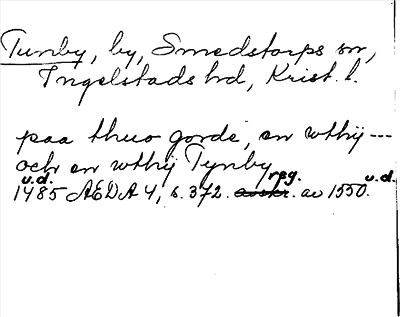 Tunby, by, Smedstorps sn,
Ingelstads hd, Krist. l.
paa thuo gorde, en wthij ---
och en wthij Tynby
u.d. reg. u.d.
1485 ÆDA 4, s. 372. avskr. av 1550.